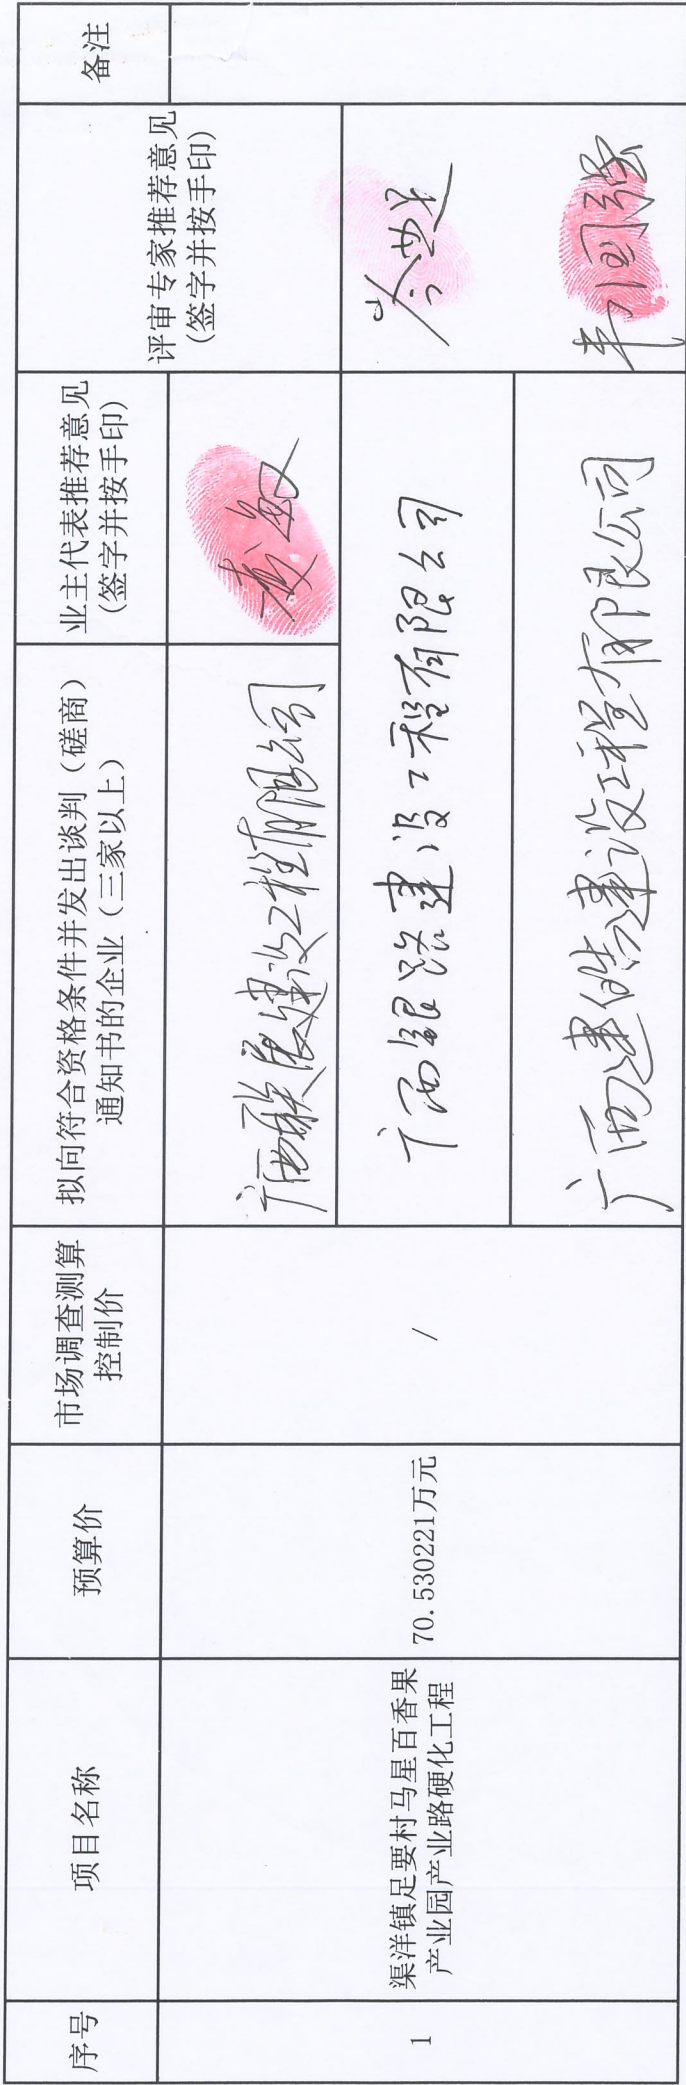 序号
项目名称
预算价
市场调查测算
控制价
拟向符合资格条件并发出谈判（磋商）
通知书的企业（三家以上）
业主代表推荐意见
（签字并按手印）
评审专家推荐意见
（签字并按手印）
备注
1
渠洋镇足要村马星百香果
产业园产业路硬化工程
70.530221万元
/
广西联辰建设工程有限公司
广西银洛建设工程有限公司
广西建皓建设工程有限公司